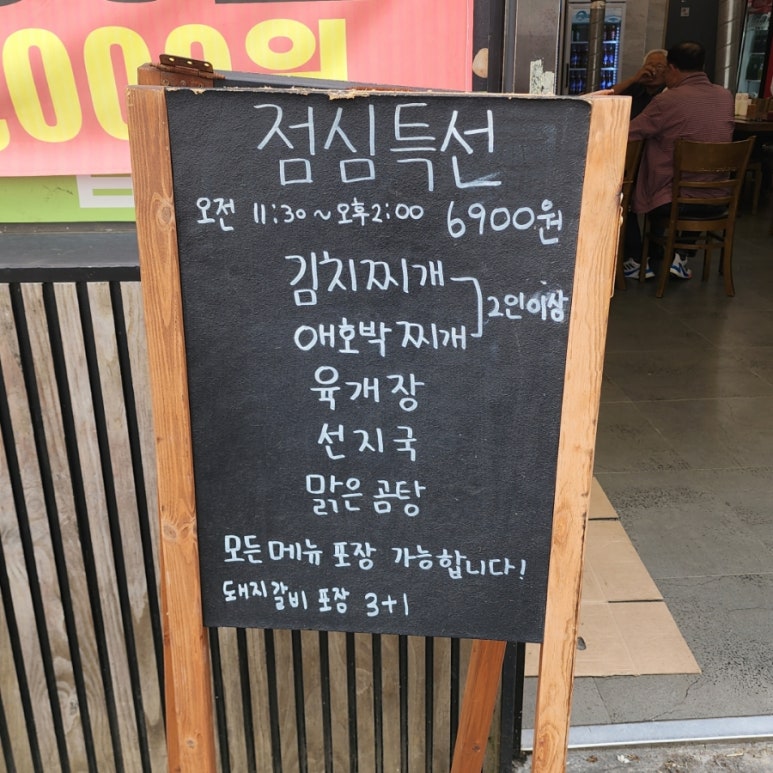 000원
점심특선
오전 11:30~오후2:00 6900원
김치찌개
애호박찌개
2인이상
육개장
선지국
맑은곰탕
모든메뉴 포장 가능합니다!
돼지갈비 포장 3+1